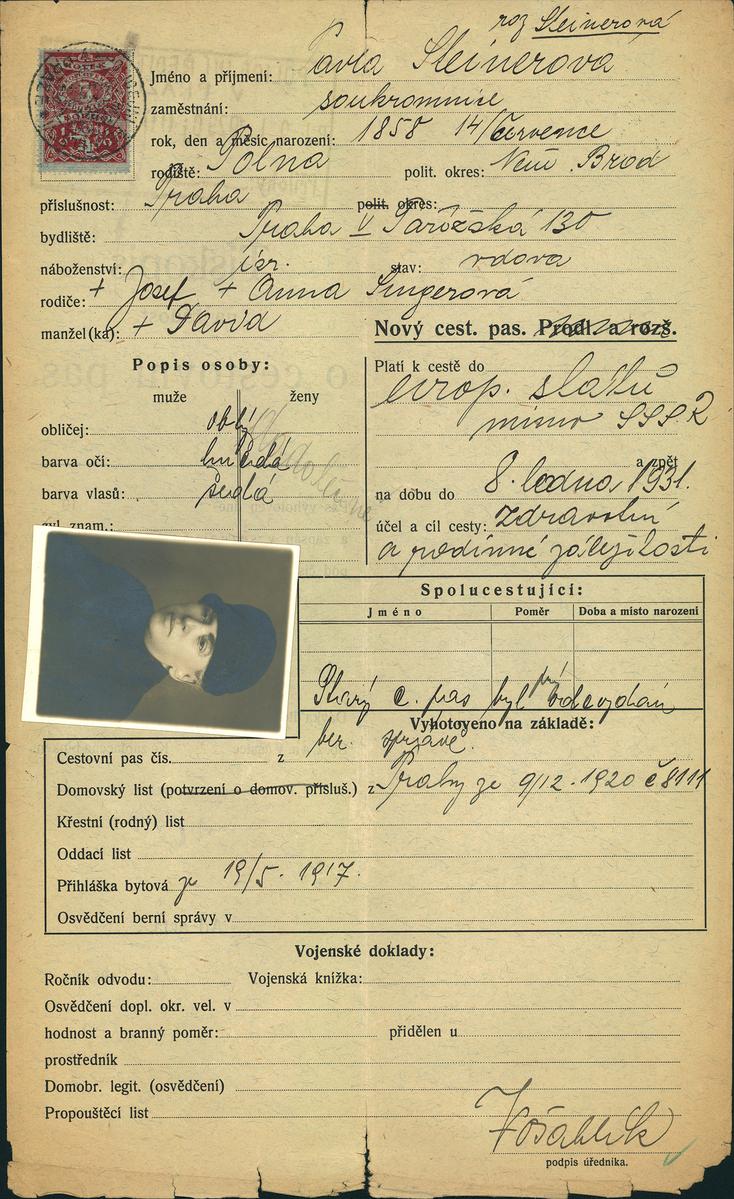 roz Steinerová
Jméno a přijmení: Pavla Steinerová
zaměstnání: soukromnice
rok, den a měsíc narození: 1858 14/července
rodiště: Polna polit. okres: Něm. Brod
příslušnost: Praha polit. okres:
bydliště: Praha V Pařížská 130
náboženství: izr. stav: vdova
rodiče: + Josef + Anna Singerová
manžel(ka): + David
Nový cest. pas. Prodl. a rozš.
Popis osoby:
muže ženy
obličej: oblý
barva očí: hnědá
barva vlasů: šedá
zvl. znam.:
Platí k cestě do
evrop. států
mimo SSSR
a zpět
na dobu do 8. ledna 1931.
účel a cíl cesty: zdravotní
a rodinné záležitosti
Spolucestující:
Jméno Poměr Doba a místo narození
Starý c. pas byl prý odevzdán
ber. správě.
Vyhotoveno na základě:
Cestovní pas čís. z
Domovský list (potvrzení o domov. přísluš.) z Prahy ze 9/12. 1920 č 8111
Křestní (rodný) list
Oddací list
Přihláška bytová ze 19/5. 1917.
Osvědčení berní správy v
Vojenské doklady:
Ročník odvodu: Vojenská knížka:
Osvědčení dopl. okr. vel. v
hodnost a branný poměr: přidělen u
prostředník
Domobr. legit. (osvědčení)
Propouštěcí list
podpis úředníka.